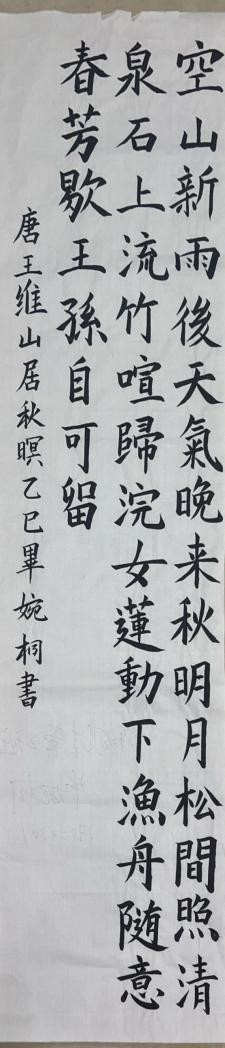 空山新雨後天氣晚来秋明月松間照清
泉石上流竹喧歸浣女蓮動下漁舟随意
春芳歇王孫自可留
唐王維山居秋暝乙巳畢婉桐書